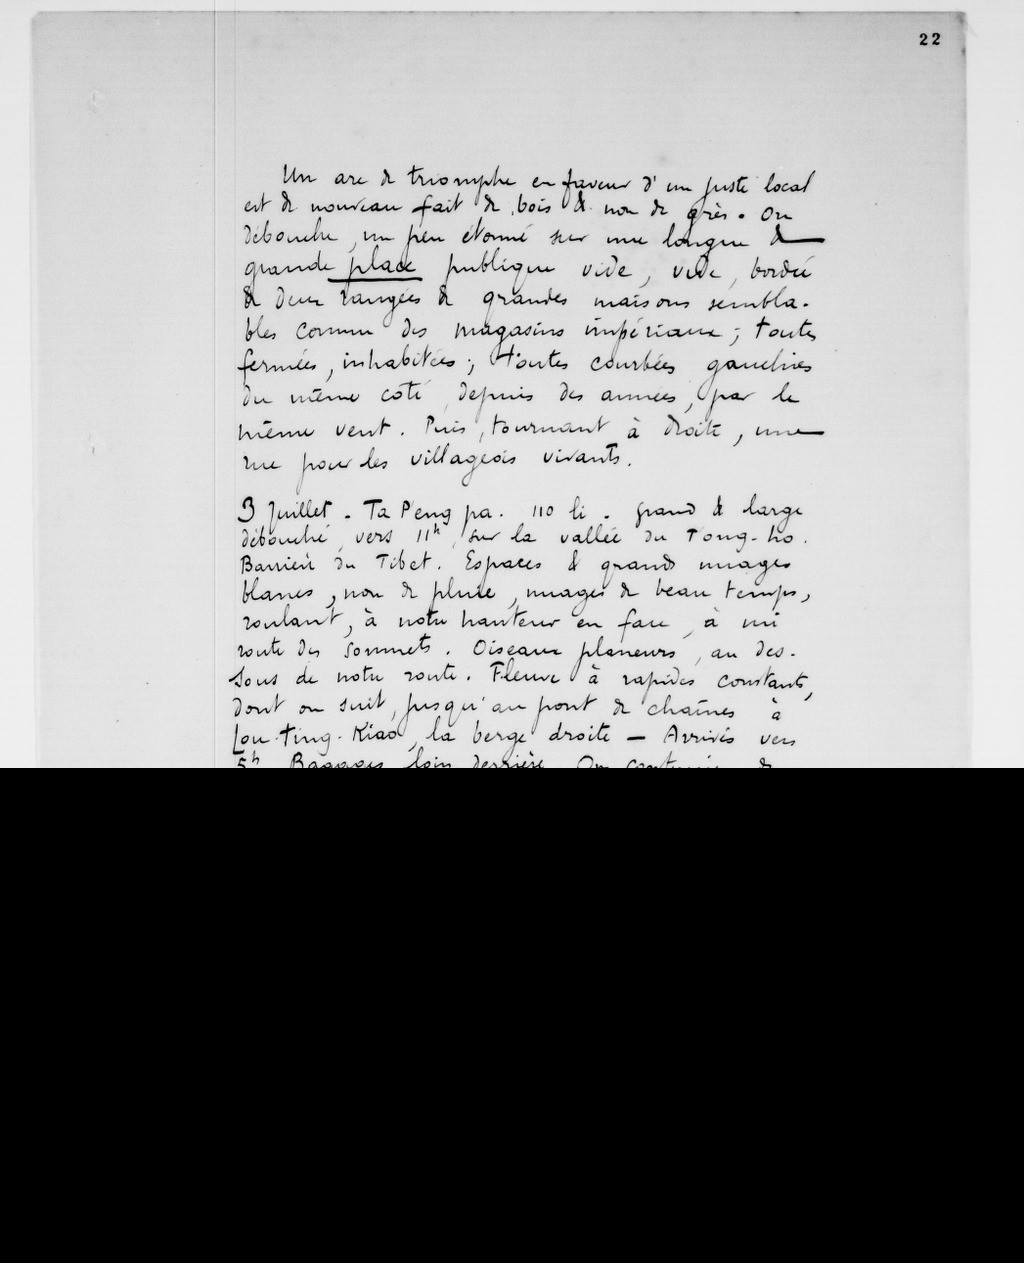 22
Un arc de triomphe en faveur d'un juste local
est de nouveau fait de bois & non de grès. On
débouche, un peu étonné sur une longue &
grande place publique vide, vide, bordée
de deux rangées de grandes maisons sembla-
bles comme des magasins impériaux ; toutes
fermées, inhabitées ; toutes courbées gauchies
du même côté, depuis des années, par le
même vent. Puis, tournant à droite, une
rue pour les villageois vivants.
3 Juillet - Ta P'eng pa. 110 li. grand & large
débouché, vers 11h, sur la vallée du Tong-ho.
Barrière du Tibet. Espaces & grands nuages
blancs, non de pluie, nuages de beau temps,
roulant, à notre hauteur en face, à mi
route des sommets. Oiseaux planeurs, au des-
sous de notre route. Fleuve à rapides constants,
dont on suit, jusqu'au pont de chaînes à
Lou-Ting-Kiao, la berge droite — Arrivés vers
5h Bagages loin derrière. On